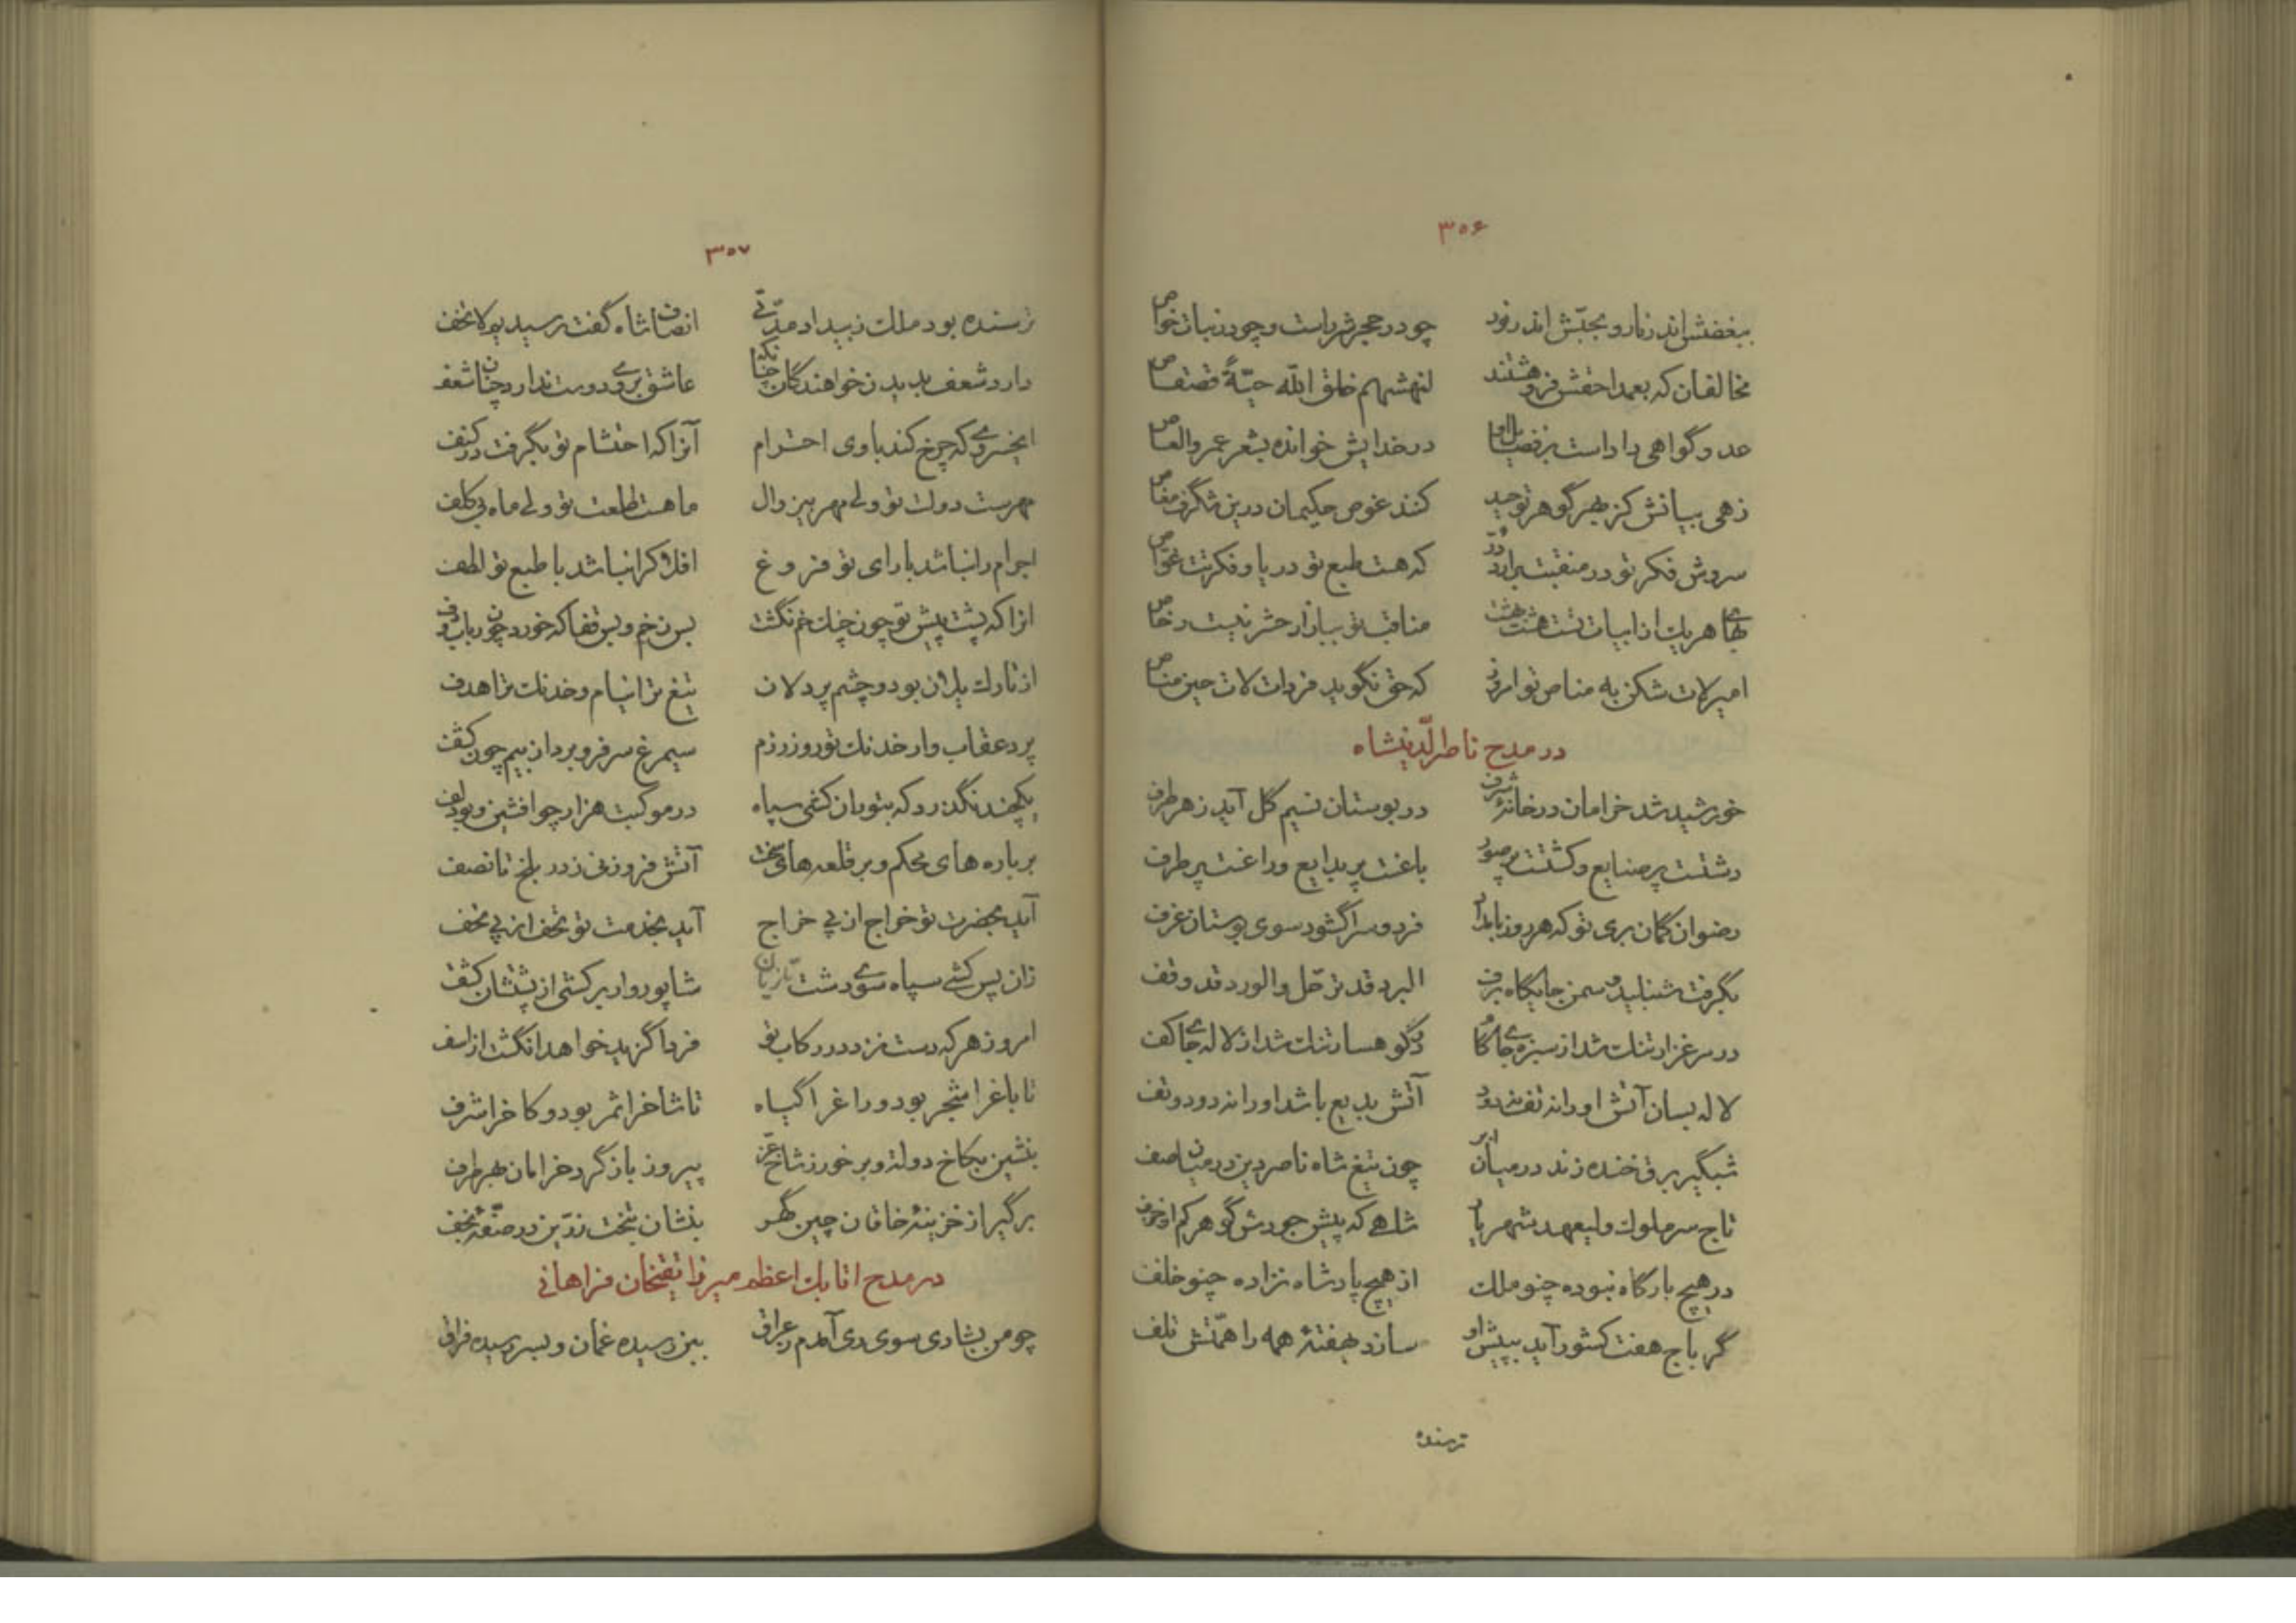 ۳۵۶
ببغضش اندر نار و بحبّش اندر نور چو در حجر شرر است و چو در نبات خواص
مخالفان که بعمدا حقش فرو هشتند لنهشهم خلق الله حیّةً قصقاص
عدو گواهی داد است بر فضایل او در خدایش خوانده بشعر عمرو العاص
زهی بیانش کز بهر گوهر توحید کنند غوص حکیمان درین شگرف مغاص
سروش فکر تو در منقبت برآرد درّ که هست طبع تو دریا و فکرتت غوّاص
بهای هر یک از ابیات تست هشت بهشت مناقب تو ببازار حشر نیست رخاص
امیر لات شکن به مناص تو امروز که حق نگوید فردات لات حین مناص
در مدح ناصرالدّینشاه
خورشید شد خرامان در خانهٔ شرف در بوستان نسیم گل آید ز هر طرف
دشتت پر صنایع و کشتت پر صور باغت پر بدایع و راغت پر طرف
رضوان گمان بری تو که هر روز بامداد فردوس را گشود سوی بوستان غرف
بگرفت شنبلید و سمن جایگاه برف البرد قد ترحّل و الورد قد وقف
در مرغزار تنگ شد از سبزه جای گام در کوهسار تنگ شد از لاله جای کف
لاله بسان آتش او را نه تف نه دود آتش بدیع باشد او را نه دود و تف
شبگیر برق خنده زند در میان ابر چون تیغ شاه ناصر دین در میان صف
تاج سر ملوک ولیعهد شهریار شاهی که پیش جودش گوهر کم از خزف
در هیچ بارگاه نبوده چنو ملک از هیچ پادشاه نزاده چنو خلف
گر باج هفت کشور آید ببیش او سازد بهفتهٔ همه را همّتش تلف
ترسنده
۳۵۷
ترسنده بود ملک ز بیداد مدّتی انصاف شاه گفت رسیدیم لا تخف
دارد شعف بدیدن خواهندگان چنانک عاشق بروی دوست ندارد چنان شعف
ای خسروی که چرخ کند با وی احترام آنرا که احتشام تو بگرفت در کنف
مهرست دولت تو ولی مهر بی زوال ماهست طلعت تو ولی ماه بی کلف
اجرام را نباشد با رای تو فروغ افلاک را نباشد با طبع تو لطف
آنرا که پشت پیش تو چون چنگ خم نگشت بس زخم و بس قفا که خورد چون رباب و دف
از تارک یلان بود و چشم پردلان تیغ ترا نیام و خدنگ ترا هدف
پرد عقاب وار خدنگ تو روز رزم سیمرغ سر فرو برد از بیم چون کشف
یکچند نگذرد که بتوران کشی سپاه در موکبت هزار چو افشین و بودلف
بر باره های محکم و بر قلعه های سخت آتش فروزنی ز در بلخ تا نصف
آید بحضرت تو خراج از پی خراج آید بخدمت تو تحف از پی تحف
زان پس کشی سپاه سوی دشت تازیان شاپور وار برکشی از پشتشان کتف
امروز هر که دست نزد در رکاب تو فردا گزید خواهد انگشت از اسف
تا باغ را شجر بود و راغ را گیاه تا شاخ را ثمر بود و کاخ را شرف
بنشین بکاخ دولت و بر خور ز شاخ عزّ پیروز باز گرد خرامان بهر طرف
برگیر از خزینهٔ خاقان چین گهر بنشان بتخت زرّین در صفّهٔ نجف
در مدح اتابک اعظم میرزا تقیخان فراهانی
چو من بشادی سوی ری آمدم ز عراق بمن رسیده غمان و بسر رسیده فراق